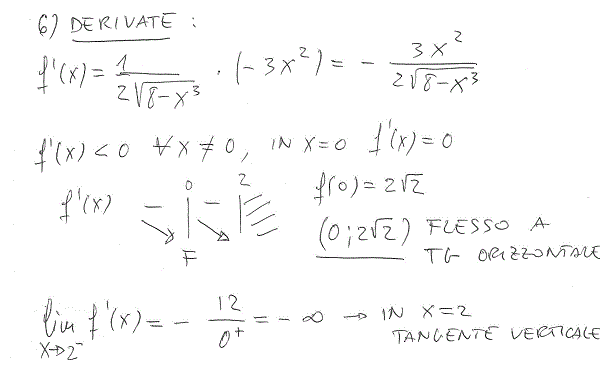 6) DERIVATE :
f'(x) = 1 / 2√(8-x³) · (-3x²) = - 3x² / 2√(8-x³)
f'(x) < 0 ∀x ≠ 0, IN x=0 f'(x) = 0
0 2 f(0) = 2√2
f'(x) - | - |
F (0; 2√2) FLESSO A
TG ORIZZONTALE
lim f'(x) = - 12 / 0⁺ = - ∞ → IN x=2
x→2⁻ TANGENTE VERTICALE